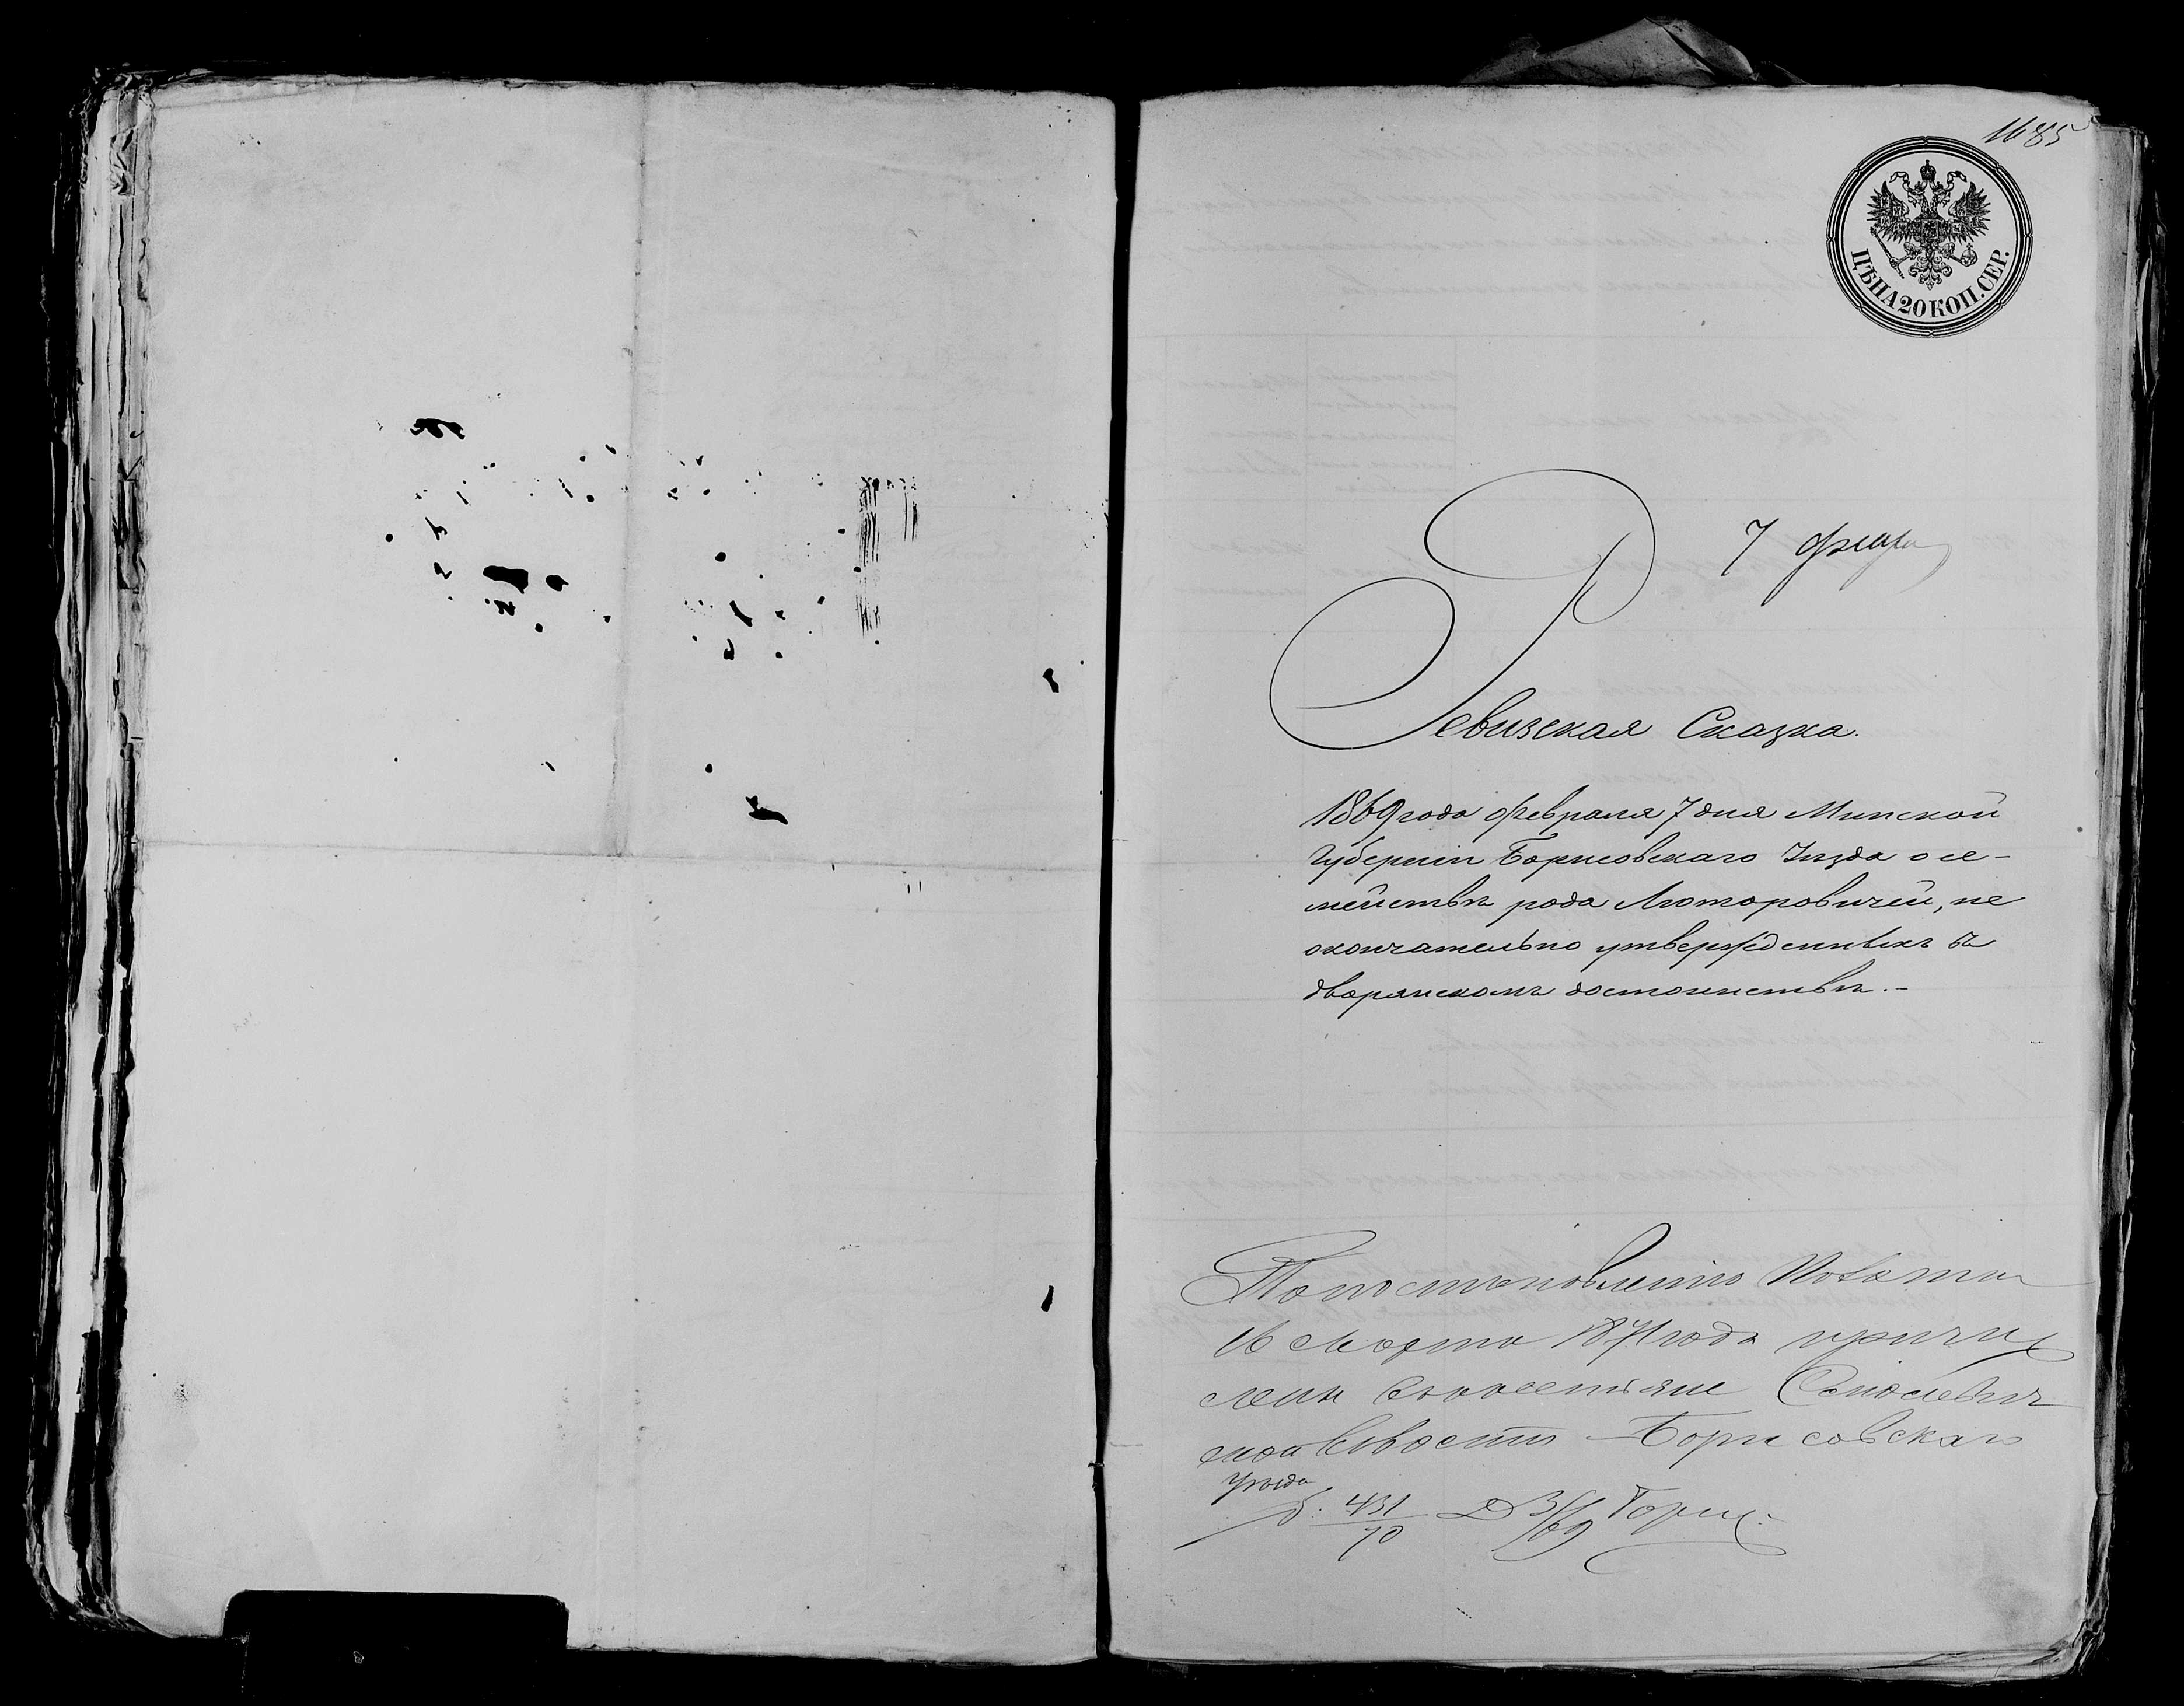 1685
ЦѢНА 20 КОП. СЕР.
7 февра
Ревизская Сказка.
1869 года февраля 7 дня Минской
Губерніи Борисовскаго Уѣзда о се-
мействѣ рода Лютаровичей, не
окончательно утвержденныхъ въ
дворянскомъ достоинствѣ.-
По постановленію Палаты
16 Марта 1871 года причис
лен
Борисовскаго
уѣзда
431
70